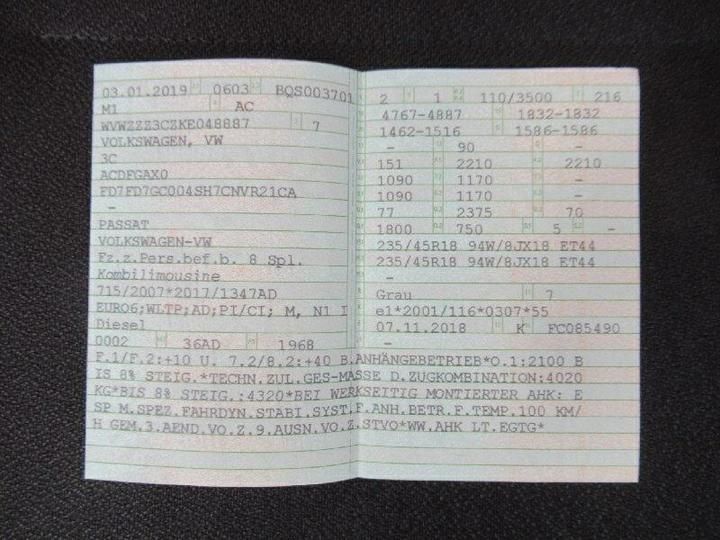 03.01.2019 0603 BQS003701
M1 AC
WVWZZZ3CZKE048887 7
VOLKSWAGEN, VW
3C
ACDFGAX0
FD7FD7GC004SH7CNVR21CA
–
PASSAT
VOLKSWAGEN-VW
Fz.z.Pers.bef.b. 8 Spl.
Kombilimousine
715/2007*2017/1347AD
EURO6;WLTP;AD;PI/CI; M, N1 I
Diesel
0002 36AD 1968
2 1 110/3500 216
4767-4887 1832-1832
1462-1516 1586-1586
– 90 –
151 2210 2210
1090 1170 –
1090 1170 –
77 2375 70
1800 750 5 –
235/45R18 94W/8JX18 ET44
235/45R18 94W/8JX18 ET44
–
Grau 7
e1*2001/116*0307*55
07.11.2018 K FC085490
–
F.1/F.2:+10 U. 7.2/8.2:+40 B.ANHÄNGEBETRIEB*O.1:2100 B
IS 8% STEIG.*TECHN.ZUL.GES-MASSE D.ZUGKOMBINATION:4020
KG*BIS 8% STEIG.:4320*BEI WERKSEITIG MONTIERTER AHK: E
SP M.SPEZ.FAHRDYN.STABI.SYST.F.ANH.BETR.F.TEMP.100 KM/
H GEM.3.AEND.VO.Z.9.AUSN.VO.Z.STVO*WW.AHK LT.EGTG*